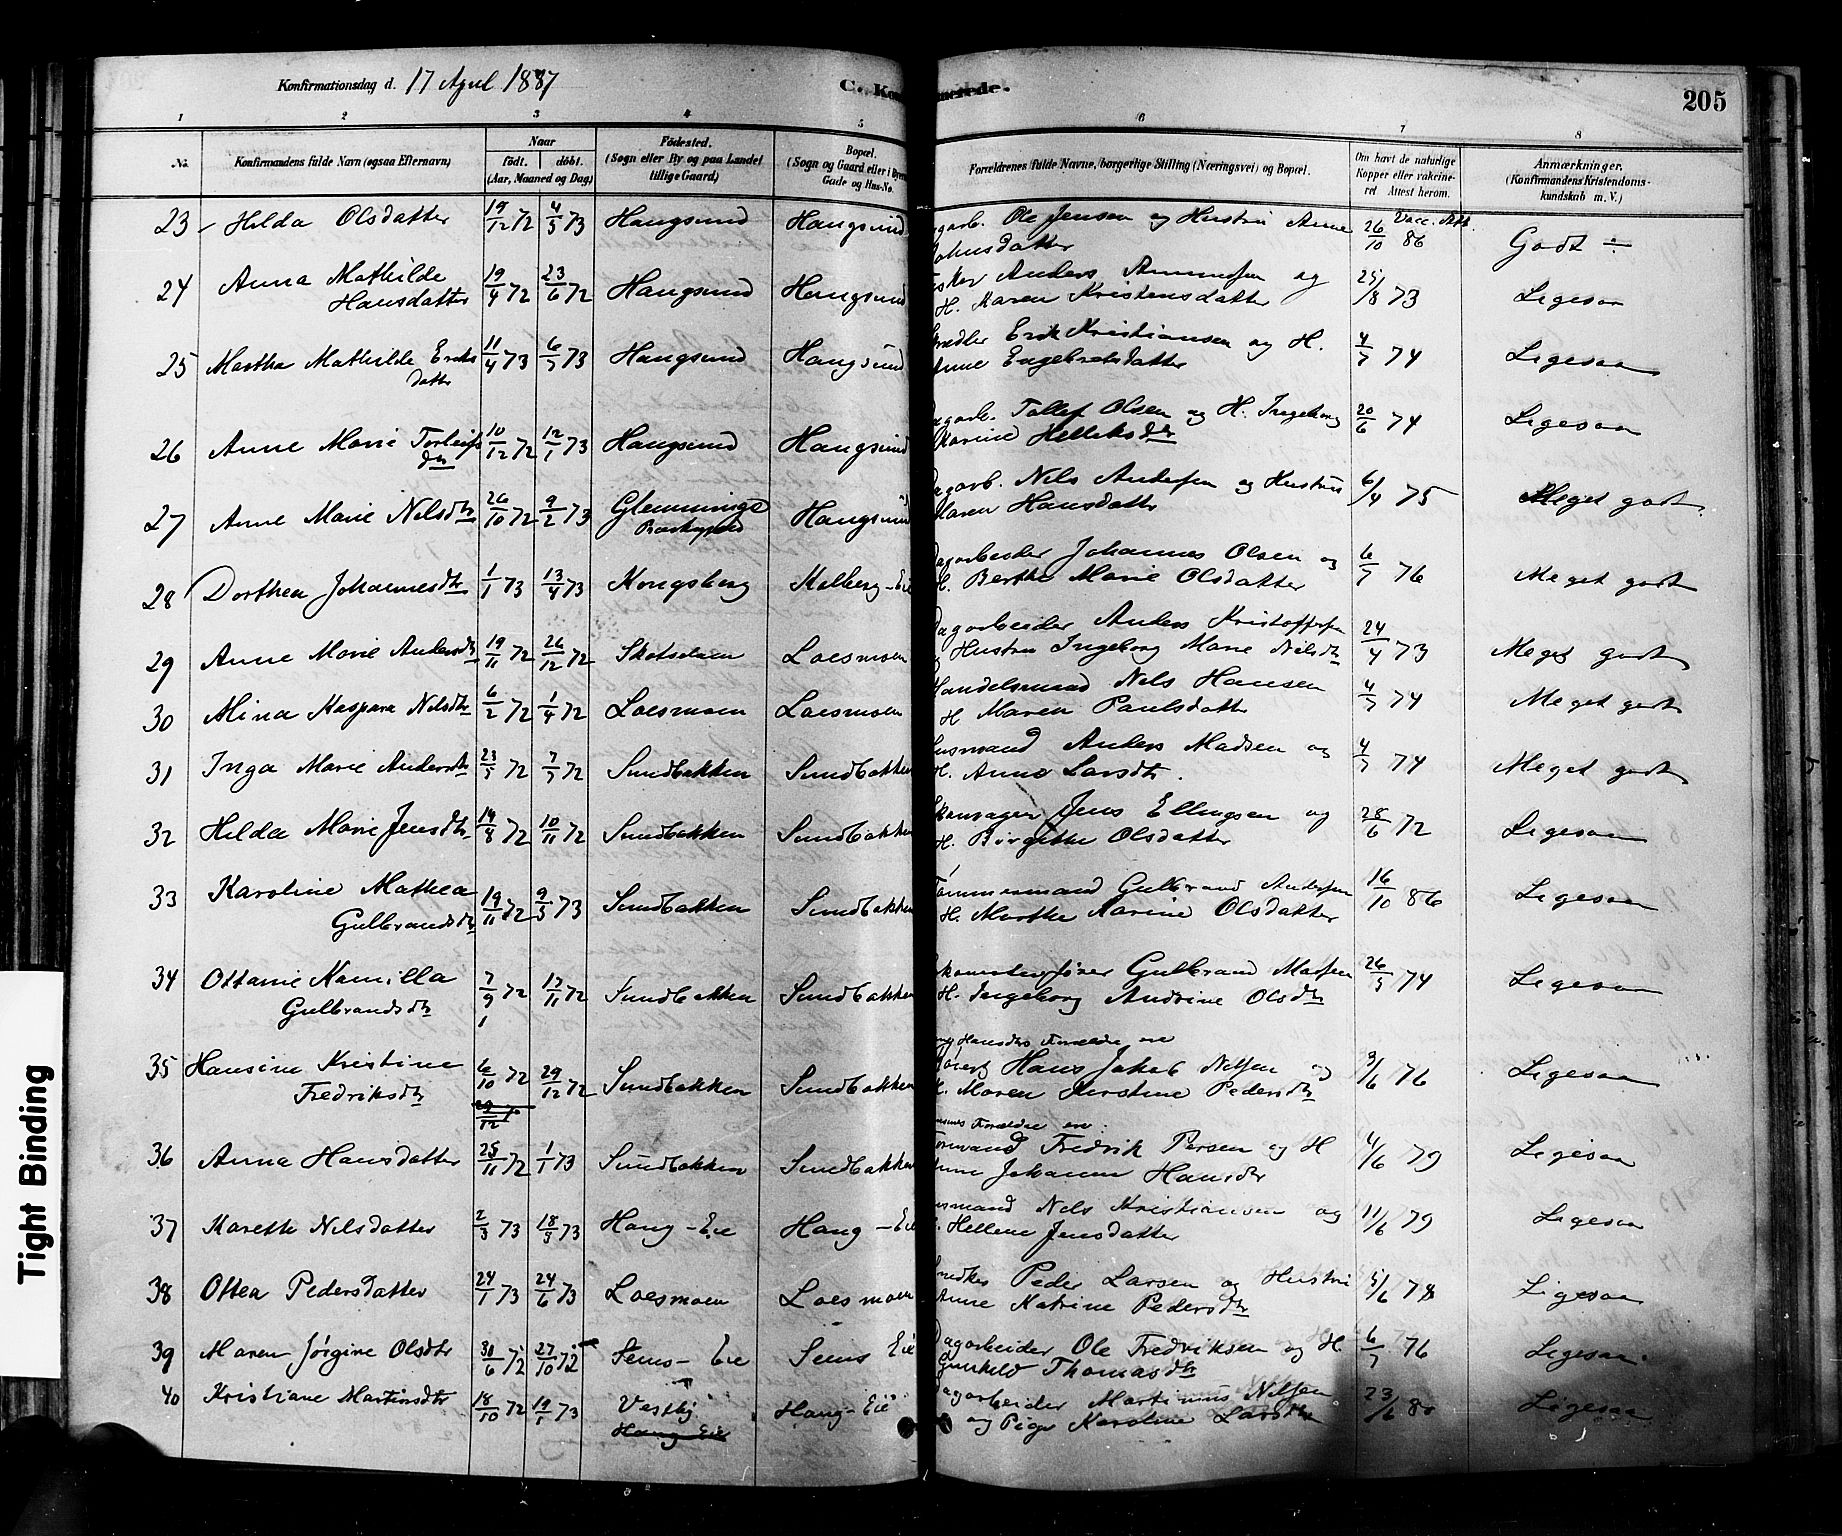 Konfirmationsdag d. 17 April 1887
205
1 2 3 4 5 6 7 8
No. Konfirmandens fulde Navn (ogsaa Efternavn) Naar født. døbt. (Aar, Maaned og Dag) Fødested. (Sogn eller By og paa Landet tillige Gaard) Bopæl. (Sogn og Gaard eller i Byerne Gade og Hus-No. Forældrenes fulde Navne, borgerlige Stilling (Næringsvei) og Bopæl. Om havt de naturlige Kopper eller vakcineret Attest herom. Anmærkninger. (Konfirmandens Kristendomskundskab m. V.)
23 Hilda Olsdatter 19/12 72 4/5 73 Haugsund Haugsund Ole Jensen og Hustru Anne
Johnsdatter 26/10 86 Vacc. Att. Godt
24 Anna Mathilde
Hansdatter 19/4 72 23/6 72 Haugsund Haugsund Anders Ammundsen og
H. Maren Kristensdatter 25/8 73 Ligesaa
25 Martha Mathilde Eriks
datter 11/4 73 6/7 73 Haugsund Haugsund Erik Kristiansen og H.
Anne Engebretsdatter 4/7 74 Ligesaa
26 Anne Marie Torleifs
dtr 10/12 72 12/1 73 Haugsund Haugsund Tollef Olsen og H. Ingeborg
Karine Helleksdtr 20/6 74 Ligesaa
27 Anne Marie Nilsdtr 26/10 72 9/2 73 Glemminge Haugsund Dagarb. Nils Andersen og Hustru
Maren Hansdatter 6/4 75 Meget godt
28 Dorthea Johannesdtr 1/1 73 13/4 73 Kongsberg Kolberg-Eie Dagarbeider Johannes Olsen og
H. Berthe Marie Olsdatter 6/7 76 Meget godt
29 Anne Marie Andersdtr 19/11 72 26/12 72 Skotselven Loesmoen Dagarbeider Anders Kristoffersen
og Hustru Ingeborg Marie Nilsdtr 24/4 73 Meget godt
30 Mina Kaspara Nilsdtr 6/2 72 1/4 72 Loesmoen Loesmoen Handelsmand Nels Hansen
H. Maren Paulsdatter 4/7 74 Meget godt
31 Inga Marie Andersdtr 23/5 72 7/7 72 Sundbakken Sundbakken Husmand Anders Madsen og
H. Anne Larsdtr. 4/7 74 Meget godt
32 Hilda Marie Jensdtr 14/8 72 10/11 72 Sundbakken Sundbakken Jens Ellingsen og
H. Birgitte Olsdatter 28/6 72 Ligesaa
33 Karoline Mathea
Gulbrandsdtr 19/11 72 9/3 73 Sundbakken Sundbakken Tømmermand Gulbrand Andersen
H. Marthe Karine Olsdatter 16/10 86 Ligesaa
34 Ottanie Kamilla
Gulbrandsdtr 7/9 72 17/11 72 Sundbakken Sundbakken Gulbrand Madsen
H. Ingeborg Andrine Olsdtr 26/5 74 Ligesaa
Hansdtrs Forældre ere
35 Hansine Kristine
Fredriksdtr 6/10 72 29/12 72 Sundbakken Sundbakken Hans Jakob Nelsen og
H. Maren Kirstine Pedersdtr 9/6 76 Ligesaa
Forældre ere:
36 Anna Hansdatter 25/11 72 1/1 73 Sundbakken Sundbakken Fredrik Persen og H
Anne Johanne Hansdtr 4/6 79 Ligesaa
37 Karethe Nilsdatter 2/3 73 18/5 73 Haug-Eie Haug-Eie Husmand Nels Kristiansen og
H. Hellene Jensdatter 11/6 79 Ligesaa
38 Ottea Pedersdatter 24/1 73 24/6 73 Loesmoen Loesmoen Snedker Peder Larsen og Hustru
Anne Katrine Pedersdtr 5/6 78 Ligesaa
39 Maren Jørgine Olsdtr 30/6 72 27/10 72 Sems-Eie Sems Eie Dagarbeider Ole Fredriksen og H
Gunhild Thomasdtr 6/7 76 Ligesaa
40 Kristiane Martinsdtr 18/10 72 19/1 73 Vestby
Haug Eie Haug-Eie Dagarbeider Martinus Nilsen
og Pige Karoline Larsdtr 23/6 Ligesaa
Tight Binding